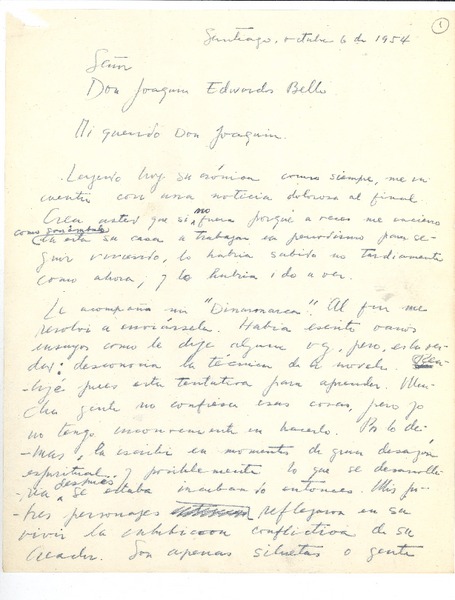 1
Santiago, octubre 6 de 1954
Señor
Don Joaquin Edwards Bello
Mi querido Don Joaquin.
Leyendo hoy su crónica como siempre, me en
cuentro con una noticia dolorosa al final
Crea usted que si no fuera porque a veces me encierro
como
en esta su casa a trabajar en periodismo para se-
guir viviendo, lo habria sabido no tardiamente
como ahora, y lo habria ido a ver.
Le acompaño mi "Dinamarca". Al fin me
resolvi a enviársela. Habia escrito varios
ensayos como le dije alguna vez, pero, esta es la ver
dad: desconocia la técnica de la novela.
pues esta tentativa para aprender. Mu-
cha gente no confiesa esas cosas, pero yo
no tengo inconveniente en hacerlo. Por lo de-
-mas, la escribi en momentos de gran desazón
espiritual y posiblemente lo que se desarrolla-
ria después se estaba incubando entonces. Mis po-
-bres personajes reflejaron en su
vivir la conflictiva de su
creador. Son apenas siluetas o gente